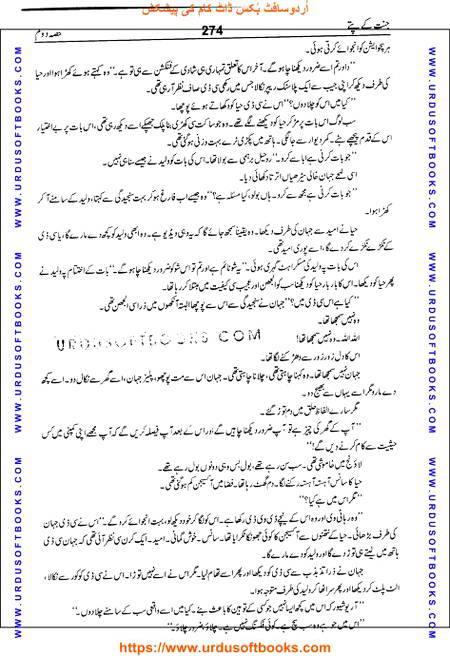 اُردو سافٹ بُکس ڈاٹ کام کی پیشکش
جنت کے پتے
274
حصہ دوم
ہر سچوایشن کو انجوائے کرتی ہوئی۔
"داور تم اسے ضرور دیکھنا چاہو گے۔ آخر اس کا تعلق تمہاری ہی شادی کے فنکشن سے ہی تو ہے۔" وہ کہتے ہوئے کھڑا ہوا اور حیا
کی طرف دیکھ کر اپنی جیب سے ایک پلاسٹک ریپر نکالا جس میں رکھی سی ڈی صاف نظر آ رہی تھی۔
"کیا میں اس کو چلا دوں؟" اس نے سی ڈی حیا کو دکھاتے ہوئے پوچھا۔
سب لوگ اس بات پر مڑ کر حیا کو دیکھنے لگے تھے۔ وہ جو ساکت سی کھڑی بنا پلک جھپکے اسے دیکھ رہی تھی، اس بات پر بے اختیار
اس کے قدم پیچھے ہٹے۔ کمر دیوار سے جا لگی۔ ہاتھ میں پکڑی ٹرے بہت وزنی ہو گئی تھی۔
"جو بات کرنی ہے ابا سے کرو۔" روحیل برہمی سے بولا تھا۔ اس کی بات کو ولید نے جیسے سنا ہی نہیں۔
اسی لمحے جہان خالی سیڑھیاں اترتا دکھائی دیا۔
"جو بات کرنی ہے مجھ سے کرو۔ ہاں بولو، کیا مسئلہ ہے؟" وہ جیسے اب فارغ ہو کر بہت سنجیدگی سے کہتا، ولید کے سامنے آ کر
کھڑا ہوا۔
حیا نے امید سے جہان کی طرف دیکھا۔ وہ یقیناً سمجھ جائے گا کہ یہ وہی ویڈیو ہے۔ وہ ابھی ولید کو کچھ دے مارے گا، یا سی ڈی
کے ٹکڑے ٹکڑے کر دے گا، اسے پوری امید تھی۔
اس کی بات پہ ولید کی مسکراہٹ گہری ہوئی۔ "یہ شو ٹائم ہے اور تم تو اس شو کو ضرور دیکھنا چاہو گے۔" بات کے اختتام پہ ولید نے
پھر حیا کو دیکھا۔ اس کا بار بار حیا کو دیکھنا سب کو الجھن اور عجیب سی کیفیت میں مبتلا کر رہا تھا۔
"کیا ہے اس سی ڈی میں؟" جہان نے سنجیدگی سے اس سے پوچھا البتہ آنکھوں میں ذرا سی الجھن تھی۔
وہ نہیں سمجھا تھا۔
اللہ اللہ۔ وہ نہیں سمجھا تھا!
اس کا دل زور زور سے دھڑکنے لگا تھا۔
جہان نہیں سمجھا تھا۔ وہ کہنا چاہتی تھی، چلانا چاہتی تھی۔ جہان اس سے مت پوچھو، پلیز جہان، اسے گھر سے نکال دو۔ اسے کچھ
دے مارو مگر اسے یہاں سے بھیج دو۔
مگر سارے الفاظ حلق میں دم توڑ گئے۔
"آپ کے گھر کی چیز ہے تو، آپ ضرور دیکھنا چاہیں گے اور اس کے بعد آپ فیصلہ کریں گے کہ آپ مجھے اپنی کمپنی میں کس
حیثیت سے کام کرنے دیں گے!"
لاؤنج میں خاموشی تھی۔ سب سن رہے تھے، بول بس وہی دونوں بول رہے تھے۔
حیا کا سانس آہستہ آہستہ رکنے لگا۔ دم گھٹ رہا تھا۔ فضا میں آکسیجن کم ہو گئی تھی۔
"مگر اس میں ہے کیا؟"
"وہ رہا ٹی وی اور وہ اس کے نیچے ڈی وی ڈی رکھا ہے۔ اس کو لگا کر خود دیکھ لو، بہت انجوائے کرو گے۔" اس نے سی ڈی جہان
کی طرف بڑھائی۔ حیا کے نتھنوں سے آکسیجن کا کوئی جھونکا ٹکرایا تھا۔ سانس۔ خوش گمانی۔ امید۔ ایک کرن سی نظر آئی تھی کہ جہان سی ڈی
ہاتھ میں لیتے ہی توڑ دے گا اور ولید کو دے مارے گا۔
جہان نے ذرا تذبذب سے سی ڈی کو دیکھا اور پھر اسے تھام لیا۔ مگر اس نے اسے نہیں توڑا۔ اس نے سی ڈی کو کور سے نکالا،
الٹ پلٹ کر دیکھا اور پھر سر اٹھا کر ولید کی طرف متوجہ ہوا۔
"آر یو شیور کہ اس میں کچھ ایسا نہیں جو کسی کے توہین کا باعث بنے۔ کیا میں اسے واقعی سب کے سامنے چلا دوں۔"
"اس میں جو ہے وہ سب سچ ہے۔ کوئی فکسنگ نہیں ہے۔ چلاؤ، ضرور چلاؤ۔"
URDUSOFTBOOKS.COM
WWW.URDUSOFTBOOKS.COM
WWW.URDUSOFTBOOKS.COM
WWW.URDUSOFTBOOKS.COM
WWW.URDUSOFTBOOKS.COM
WWW.URDUSOFTBOOKS.COM
WWW.URDUSOFTBOOKS.COM
https://www.urdusoftbooks.com